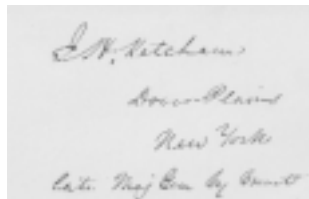 J. H. Ketcham
Dover Plains
New York
Late Maj Gen By Brevett